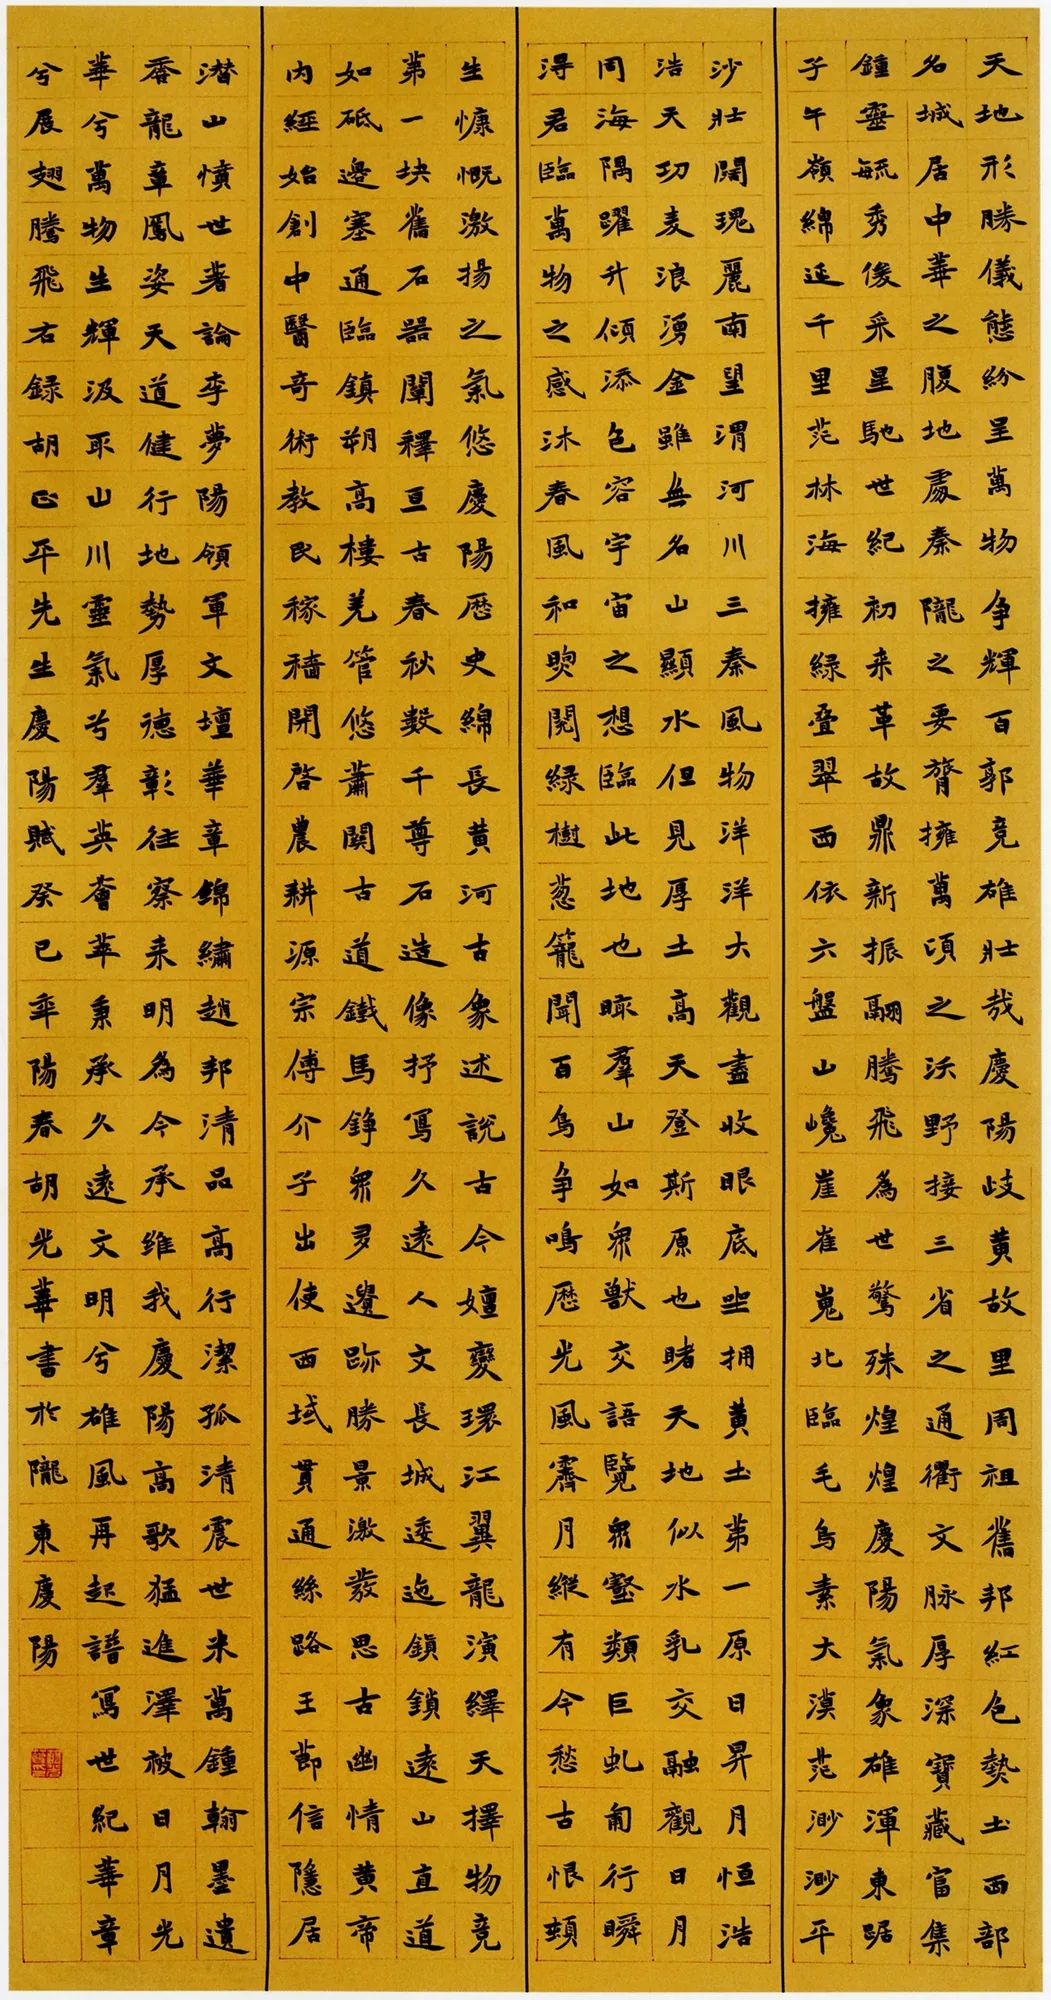 天地形勝儀態紛呈萬物争輝百郭竞雄壯哉慶陽歧黄故里周祖舊邦紅色勢土西部
名城居中華之腹地處秦隴之要膂擁萬頃之沃野接三省之通衢文脉厚深寶藏富集
鍾靈毓秀俊采星馳世紀初来革故鼎新振翮騰飛為世驚殊煌煌慶陽氣象雄渾東踞
子午嶺綿延千里茫林海擁緑叠翠西依六盤山巉崖崔嵬北臨毛烏素大漠茫渺渺平
沙壯闊瑰麗南望渭河川三秦風物洋洋大觀盡收眼底坐拥黄土第一原日昇月恒浩
浩天功麦浪湧金雖無名山顯水但見厚土高天登斯原也睹天地似水乳交融觀日月
同海隅躍升傾添色容宇宙之想臨此地也瞰羣山如衆獸交語覽衆壑類巨虬匍行瞬
淂君臨萬物之感沐春風和煗閱緑樹葱籠聞百鳥争鳴歷光風霽月縱有今愁古恨頓
生慷慨激揚之氣悠慶陽歷史綿長黄河古象述說古今嬗變環江翼龍演繹天擇物竞
第一块舊石器闡釋亘古春秋数千尊石造像抒寫久遠人文長城逶迤鎮鎖遠山直道
如砥邊塞通臨鎮朔高樓羌管悠蕭関古道鐵馬錚衆多遺跡勝景激發思古幽情黄帝
内經始創中醫奇術教民稼穡開啓農耕源宗傅介子出使西域貫通絲路王節信隱居
潜山憤世著論李夢陽領軍文壇華章錦繡趙邦清品高行潔孤清震世米萬鍾翰墨遺
香龍章鳳姿天道健行地勢厚德彰往察来明為今承維我慶陽高歌猛進澤被日月光
華兮萬物生輝汲取山川靈氣兮羣英薈萃秉承久遠文明兮雄風再起譜寫世紀華章
兮展翅騰飛右録胡正平先生慶陽賦癸巳年陽春胡光華書於隴東慶陽